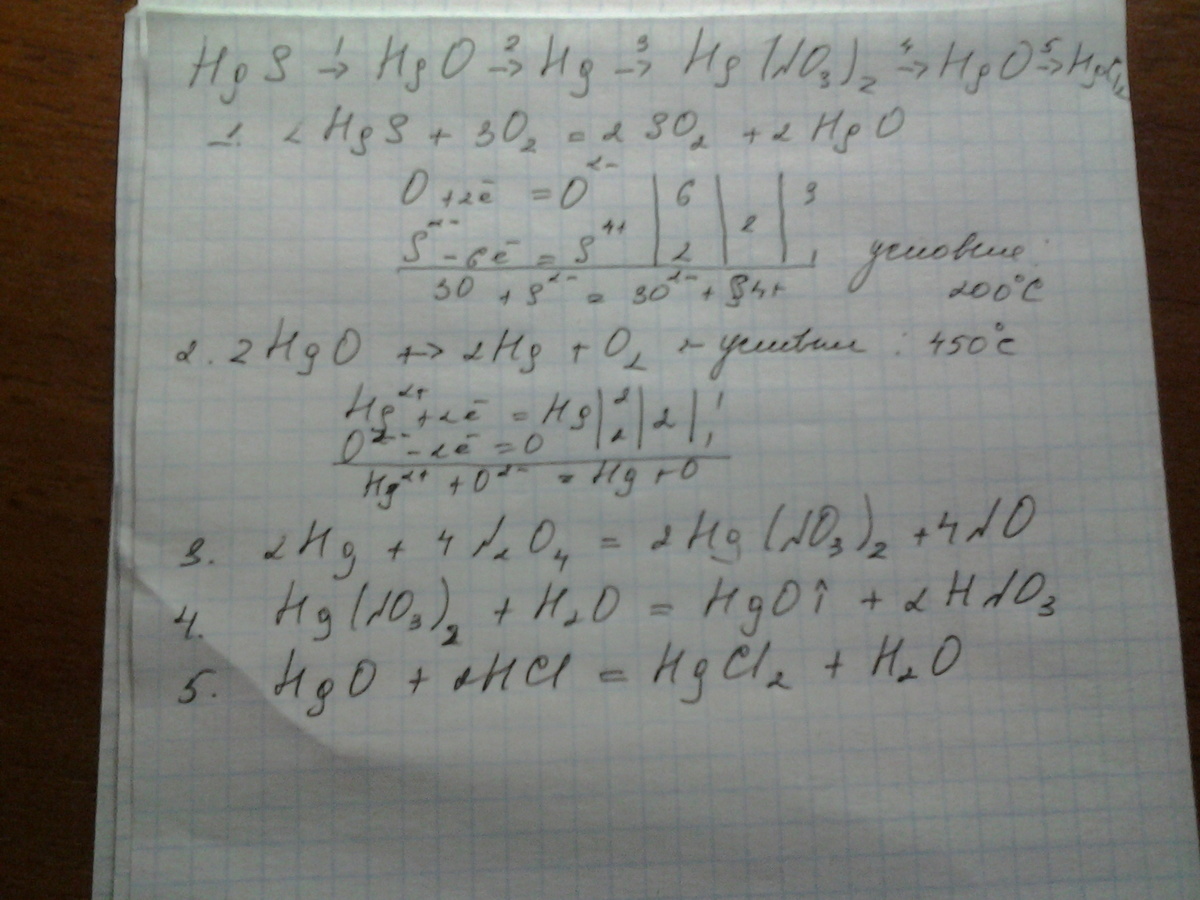 HgS →¹ HgO →² Hg →³ Hg(NO₃)₂ →⁴ HgO →⁵ HgCl₂
1. 2HgS + 3O₂ = 2SO₂ + 2HgO
O +2ē = O²⁻ | 6 | | 3
S²⁻ -6ē = S⁴⁺ | 2 | 2 | 1 условие:
3O + S²⁻ = 3O²⁻ + S4+ 200°C
2. 2HgO ↔ 2Hg + O₂ - условие: 450°C
Hg²⁺ +2ē = Hg | 2 | 2 | 1
O²⁻ -2ē = O | 2 | | 1
Hg²⁺ + O²⁻ = Hg + O
3. 2Hg + 4N₂O₄ = 2Hg(NO₃)₂ + 4NO
4. Hg(NO₃)₂ + H₂O = HgO↑ + 2HNO₃
5. HgO + 2HCl = HgCl₂ + H₂O